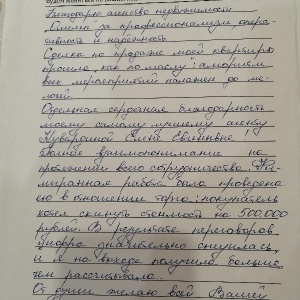 Благодарю агенство недвижимости
за профессионализм, опера-
тивность и надежность
Сделка по продаже моей квартиры
прошла, как по маслу": алгоритм
всех мероприятий налажен до ме-
лочей.
Отдельная сердечная благодарность
моему самому лучшему агенту
Елене Евгеньевне!
Полное взаимопонимание на
протяжении всего сотрудничества.
работа была проведена
ею в отношении торга: покупатель
хотел скинуть стоимость на 500.000
рублей. В результате переговоров
цифра значительно снизилась,
и я на выходе получила больше,
чем рассчитывала.
От души желаю всей Вашей